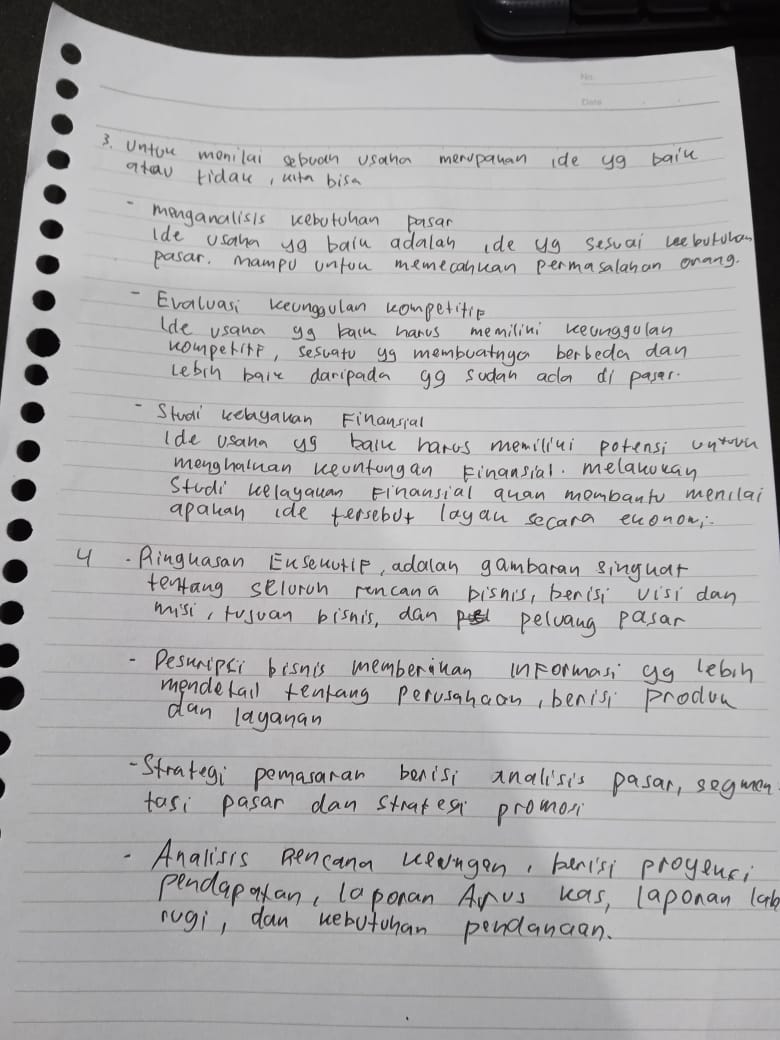 No.
Date
3. Untuk menilai sebuah usaha merupakan ide yg baik
atau tidak, kita bisa
- menganalisis kebutuhan pasar
Ide usaha yg baik adalah ide yg sesuai kebutuhan
pasar. mampu untuk memecahkan permasalahan orang.
- Evaluasi keunggulan kompetitif
Ide usaha yg baik harus memiliki keunggulan
kompetitif, sesuatu yg membuatnya berbeda dan
Lebih baik daripada yg sudah ada di pasar.
- Studi kelayakan Finansial
Ide usaha yg baik harus memiliki potensi untuk
menghalkan keuntungan Finansial. melakukan
Studi kelayakan Finansial akan membantu menilai
apakah ide tersebut layak secara ekonomi.
4 - Ringkasan Eksekutif, adalah gambaran singkat
tentang seluruh rencana bisnis, berisi visi dan
misi, tujuan bisnis, dan peluang pasar
- Deskripsi bisnis memberikan informasi yg lebih
mendetail tentang perusahaan, berisi produk
dan layanan
- Strategi pemasaran berisi analisis pasar, segmen-
tasi pasar dan strategi promosi
- Analisis Rencana keungan, berisi proyeksi
pendapatan, laporan Arus kas, laporan lab
rugi, dan kebutuhan pendanaan.